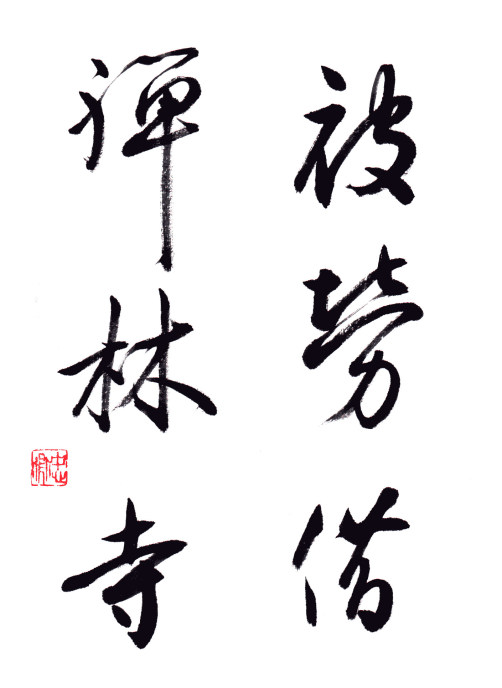 被勞借
禪林寺